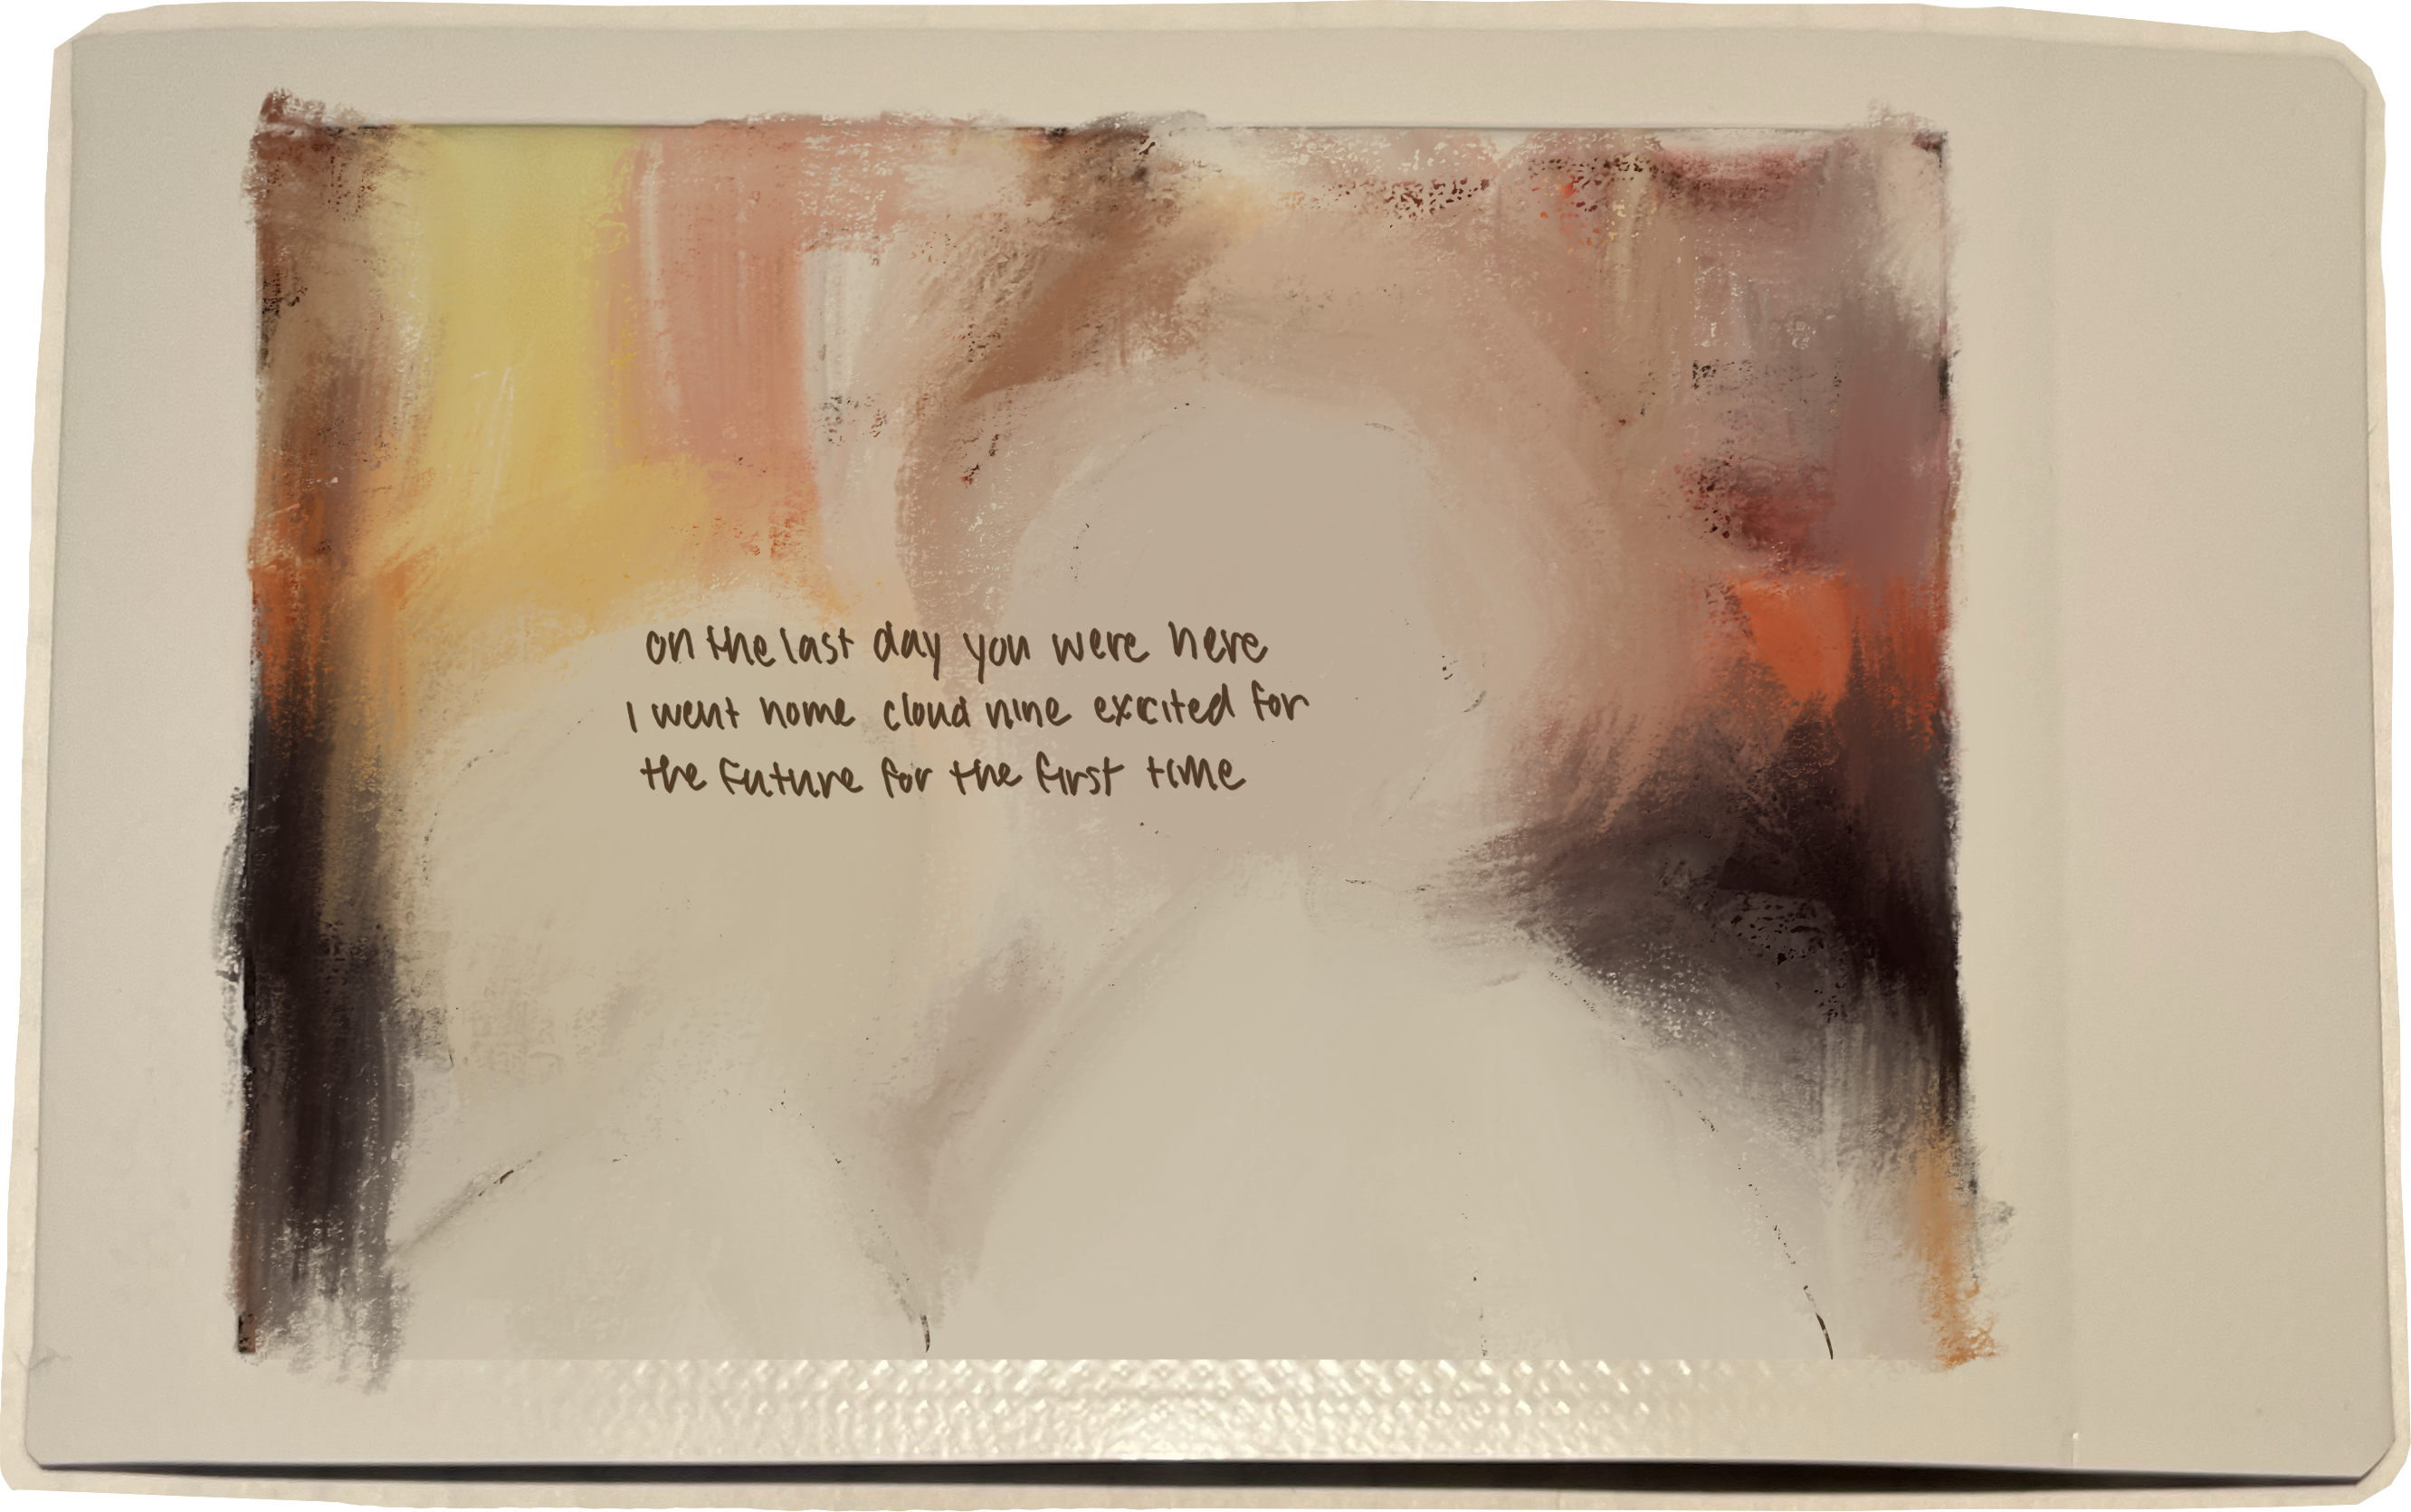 on the last day you were here
I went home cloud nine excited for
the future for the first time